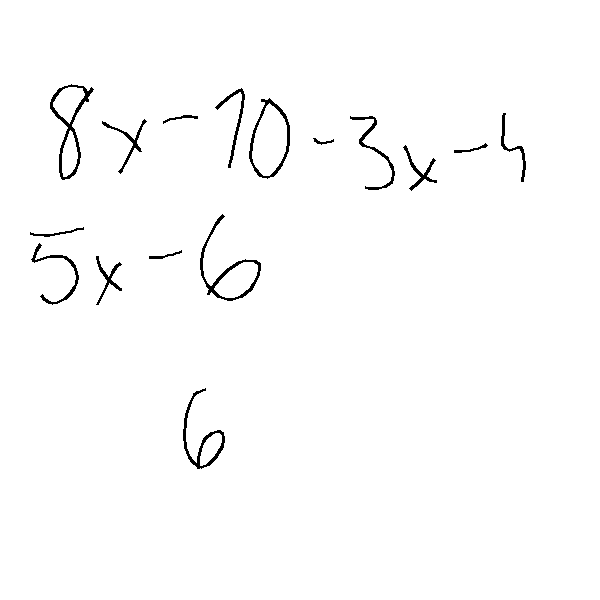 8x - 10 - 3x - 4
5x - 6
6